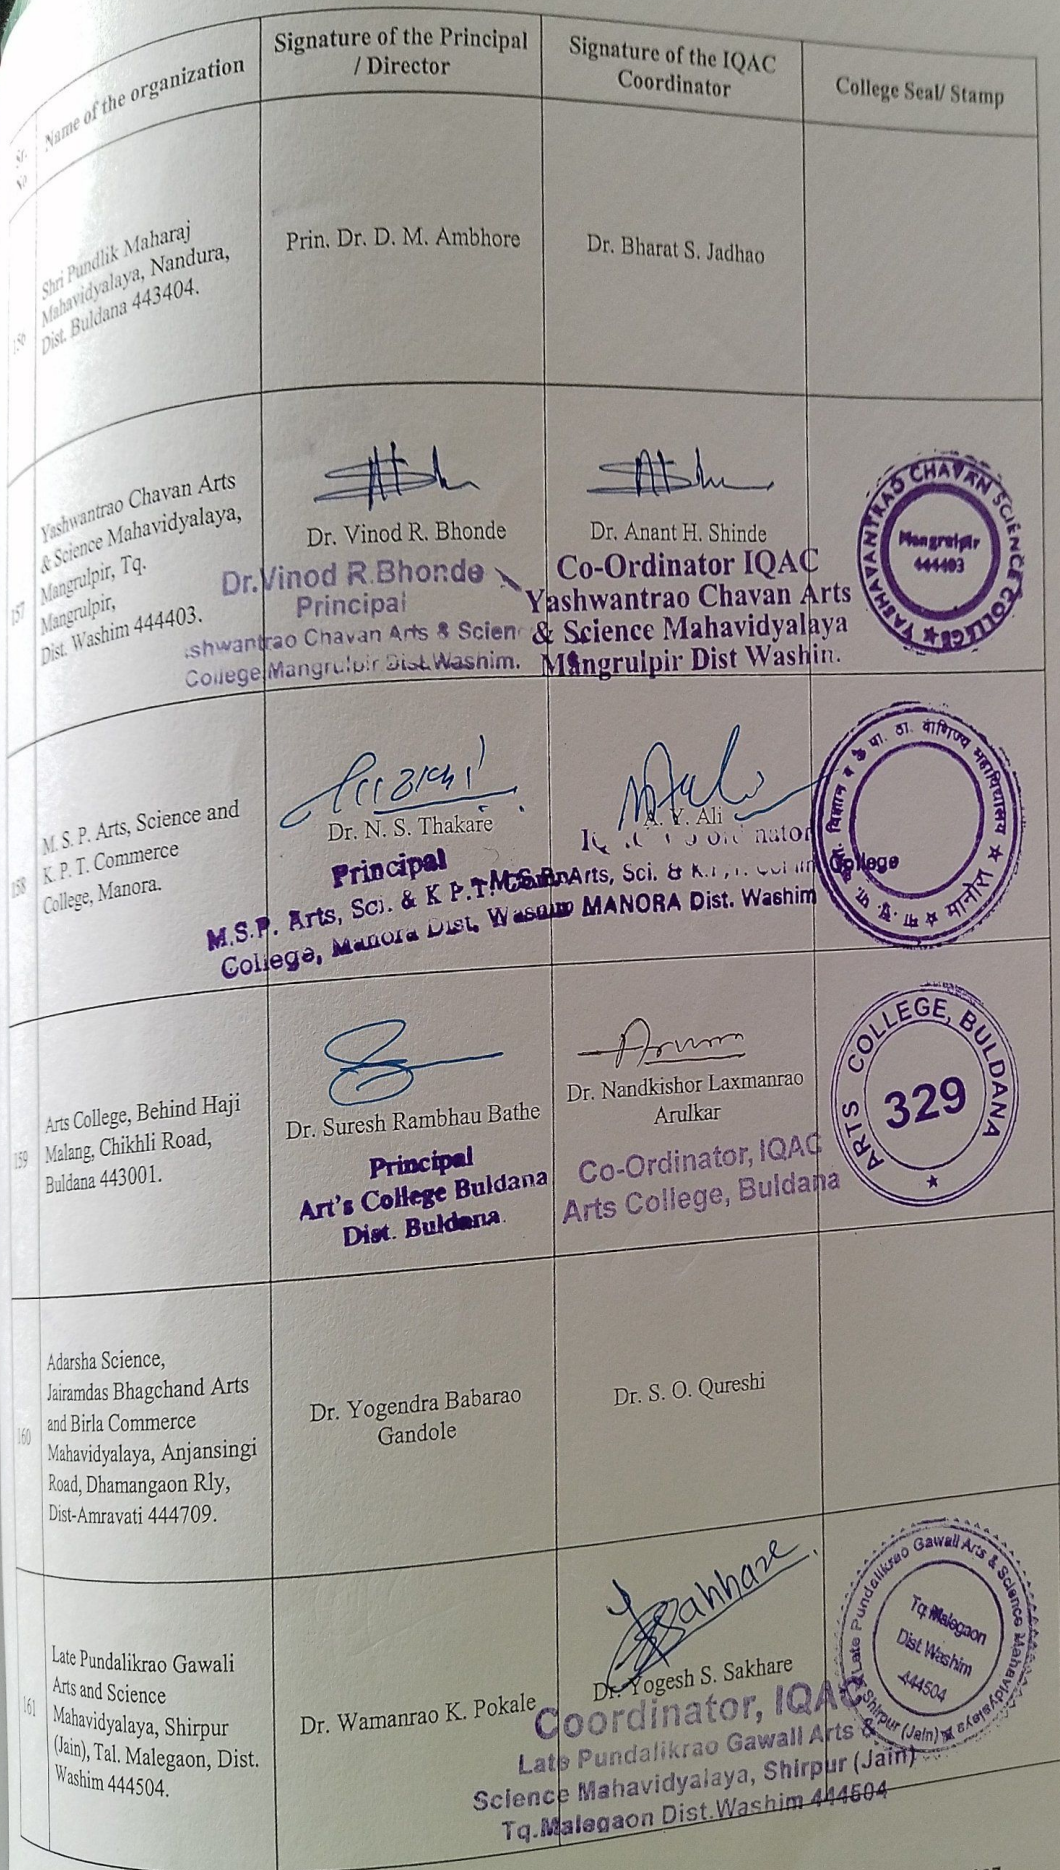 Sr. No
Name of the organization
Signature of the Principal
/ Director
Signature of the IQAC
Coordinator
College Seal/ Stamp
156
Shri Pundlik Maharaj
Mahavidyalaya, Nandura,
Dist. Buldana 443404.
Prin. Dr. D. M. Ambhore
Dr. Bharat S. Jadhao
157
Yashwantrao Chavan Arts
& Science Mahavidyalaya,
Mangrulpir, Tq.
Mangrulpir,
Dist. Washim 444403.
Dr. Vinod R. Bhonde
Dr.Vinod R.Bhonde
Principal
shwantrao Chavan Arts & Scien
College,Mangrulpir Dist.Washim.
Dr. Anant H. Shinde
Co-Ordinator IQAC
Yashwantrao Chavan Arts
& Science Mahavidyalaya
Mangrulpir Dist Washin.
YASHAVANTRAO CHAVAN SCIENCE COLLEGE ★
Mangrulpir
444403
158
M. S. P. Arts, Science and
K. P. T. Commerce
College, Manora.
Dr. N. S. Thakare
Principal
M.S.P. Arts, Sci. & K P.T. Com
College, Manora Dist, Washim
A. Y. Ali
M.S.P. Arts, Sci. & K.P.T. College
MANORA Dist. Washim
विज्ञान व के पा. ठा. वाणिज्य महाविद्यालय ★ मानोरा ★
159
Arts College, Behind Haji
Malang, Chikhli Road,
Buldana 443001.
Dr. Suresh Rambhau Bathe
Principal
Art's College Buldana
Dist. Buldana.
Arum
Dr. Nandkishor Laxmanrao
Arulkar
Co-Ordinator, IQAC
Arts College, Buldana
ARTS COLLEGE, BULDANA
329
★
160
Adarsha Science,
Jairamdas Bhagchand Arts
and Birla Commerce
Mahavidyalaya, Anjansingi
Road, Dhamangaon Rly,
Dist-Amravati 444709.
Dr. Yogendra Babarao
Gandole
Dr. S. O. Qureshi
161
Late Pundalikrao Gawali
Arts and Science
Mahavidyalaya, Shirpur
(Jain), Tal. Malegaon, Dist.
Washim 444504.
Dr. Wamanrao K. Pokale
Sakhare
Dr. Yogesh S. Sakhare
Coordinator, IQAC
Late Pundalikrao Gawali Arts &
Science Mahavidyalaya, Shirpur (Jain)
Tq.Malegaon Dist.Washim 444504
Late Pundalikrao Gawali Arts & Science Mahavidyalaya
Shirpur (Jain)
Tq. Malegaon
Dist. Washim
444504